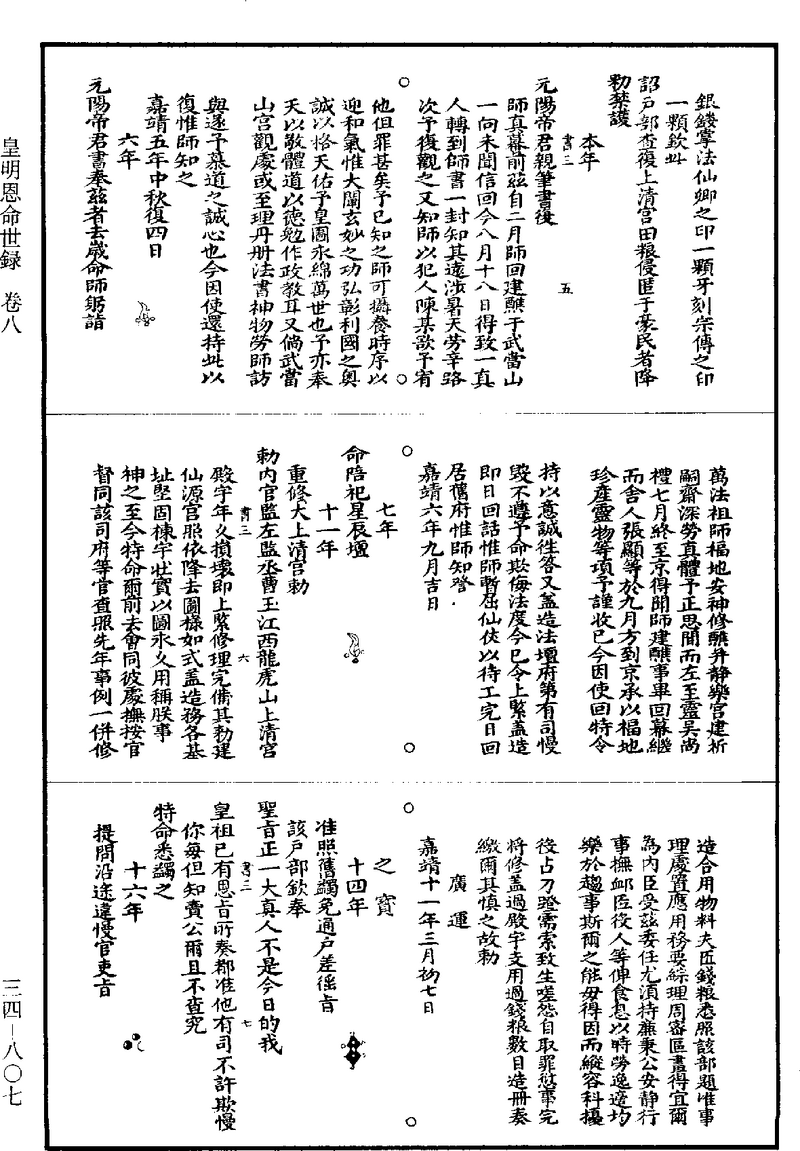 皇明恩命世録　卷八
三四—八〇七
銀錢掌法仙卿之印一顆牙刻宗傳之印
一顆欽此
詔戶部查復上清宫田粮侵匿于豪民者降
勑禁護
本年
元陽帝君親筆書復
書三
五
師真幕前兹自二月師回建醮于武當山
一向未聞信回今八月十八日得致一真
人轉到師書一封知其遠涉暑天勞辛路
次予復觀之又知師以犯人陳某欲予宥
他但罪甚矣予已知之師可攝養時序以
迎和氣惟大闡玄妙之功弘彰利國之奥
誠以格天佑予皇圖永綿萬世也予亦奉
天以敬體道以德勉作政教耳又倘武當
山宫觀處或至理丹册法書神物勞師訪
與遂予慕道之誠心也今因使還持此以
復惟師知之
嘉靖五年中秋復四日
六年
元陽帝君書奉兹者去歲命師躬詣
萬法祖師福地安神修醮并静樂宫建祈
嗣齋深勞真體予正思聞而左至靈吴尚
禮七月終至京得聞師建醮事畢回幕繼
而舍人張顯等於九月方到京承以福地
珍產靈物等項予謹收已今因使回特令
持以意誠徃答又盖造法壇府第有司慢
毁不遵予命欺侮法度今已令上緊盖造
即日回話惟師暫屈仙伎以待工完日回
居舊府惟師知詧
嘉靖六年九月吉日
七年
命陪祀星辰壇
十一年
重修大上清宫勑
勑内官監左監丞曹玉江西龍虎山上清宫
書三
六
殿宇年久損壞即上緊修理完備其勑建
仙源宫照依降去圖樣如式盖造務各基
址堅固棟宇壮實以圖永久用稱朕事
神之至今特命爾前去會同彼處撫按官
督同該司府等官查照先年事例一併修
造合用物料夫匠錢粮悉照該部題准事
理處置應用務要綜理周審區畫得宜爾
為内臣受兹委任尤須持廉秉公安静行
事撫卹匠役人等俾食息以時勞逸適均
樂於趨事斯爾之能毋得因而縱容科擾
役占刀蹬需索致生嗟怨自取罪愆事完
将修盖過殿宇支用過錢粮數目造册奏
繳爾其慎之故勑
嘉靖十一年三月初七日
廣運
之寳
十四年
准照舊蠲免通户差徭旨
該戶部欽奉
聖旨正一大真人不是今日的我
書三
七
皇祖已有恩旨所奏都准他有司不許欺慢
你每但知責公爾且不查究
特命悉蠲之
十六年
提問沿途違慢官吏旨